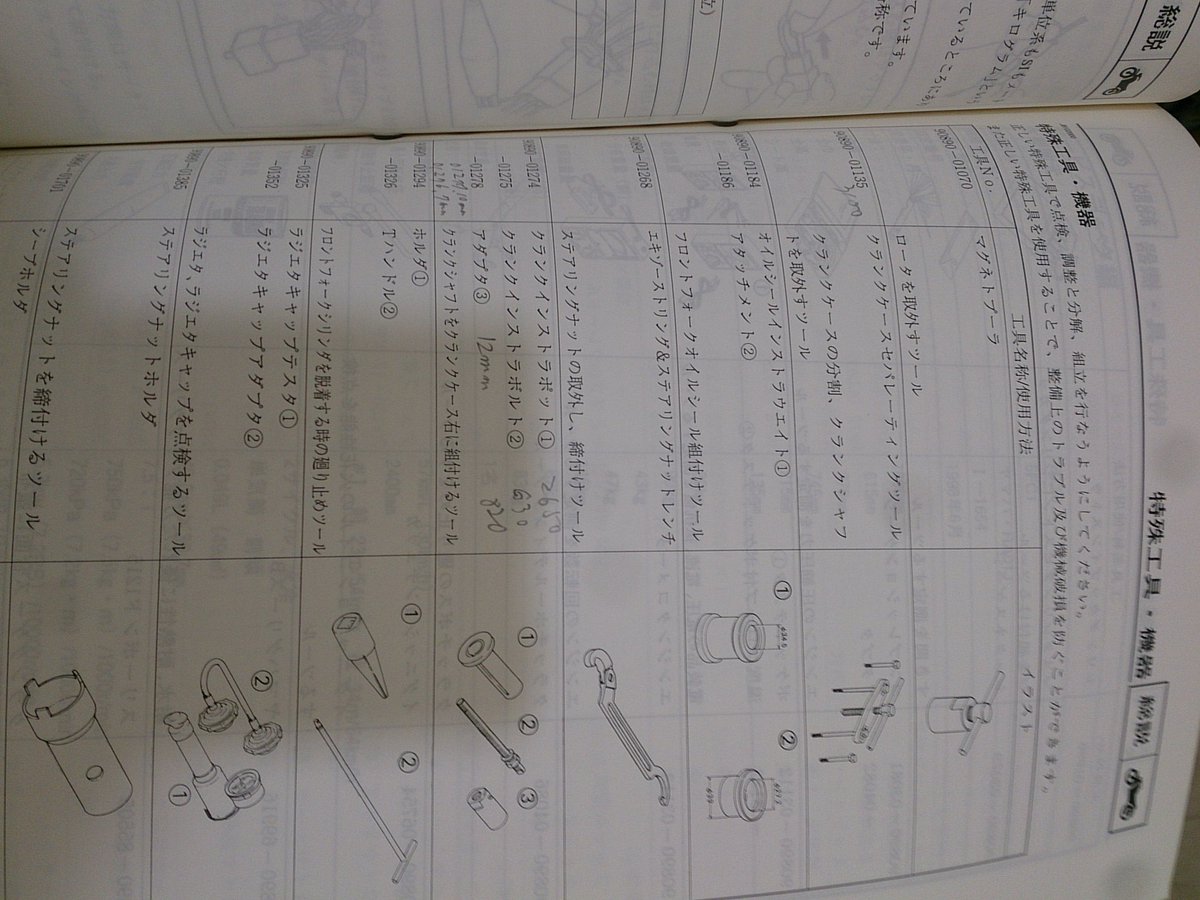 総説
特殊工具・機器
総説
特殊工具・機器
正しい特殊工具で点検、調整と分解、組立を行なうようにしてください。
また正しい特殊工具を使用することで、整備上のトラブル及び機械破損を防ぐことができます。
工具No.
工具名称/使用方法
イラスト
90890-01070
マグネットプーラ
ロータを取外すツール
90890-01135
クランクケースセパレーティングツール
クランクケースの分割、クランクシャフ
トを取外すツール
90890-01184
-01186
オイルシールインストラウエイト①
アタッチメント②
フロントフォークオイルシール組付けツール
①
②
90890-01268
エキゾーストリング&ステアリングナットレンチ
ステアリングナットの取外し、締付けツール
90890-01274
-01275
-01278
クランクインストラポット① 2650
クランクインストラボルト② 630
アダプタ③ 12mm 820
クランクシャフトをクランクケース右に組付けるツール
①
②
③
90890-01294
-01326
ホルダ①
Tハンドル②
フロントフォークシリンダを脱着する時の廻り止めツール
①
②
90890-01325
-01352
ラジエタキャップテスタ①
ラジエタキャップアダプタ②
ラジエタ、ラジエタキャップを点検するツール
②
①
ステアリングナットホルダ
ステアリングナットを締付けるツール
シーブホルダ
単位系もSIも
「キロクラム」とい
ているところにあ
ています。
称です。
立)